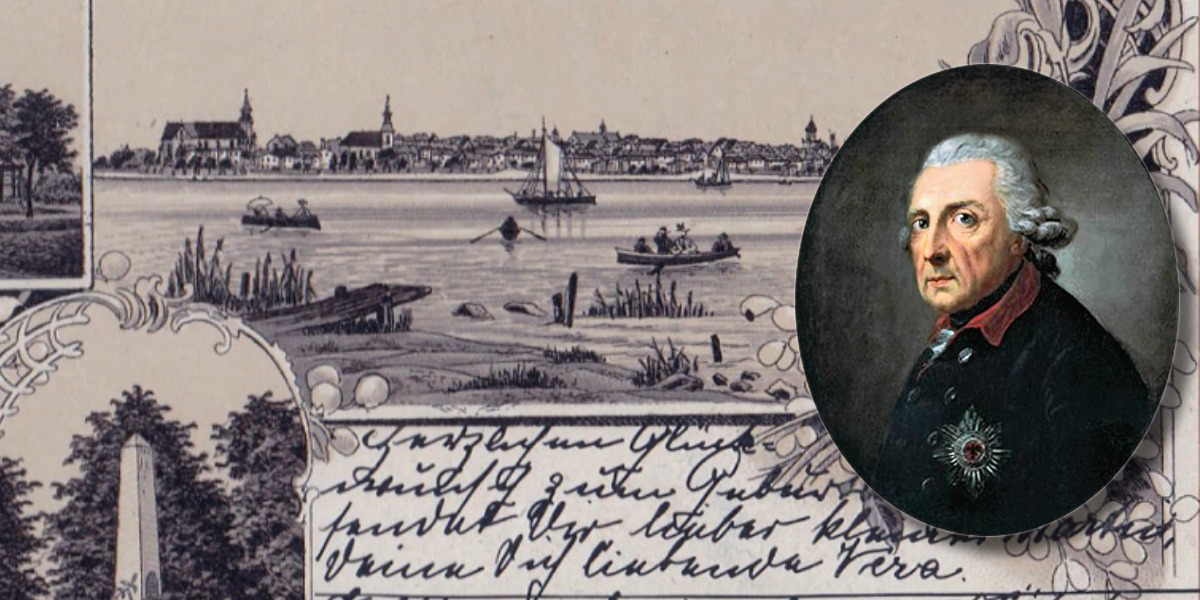 Herzlichen Glück-
wunsch zum Geburts
sendet Dir lieber kleiner Martin,
Deine Dich liebende Vera.